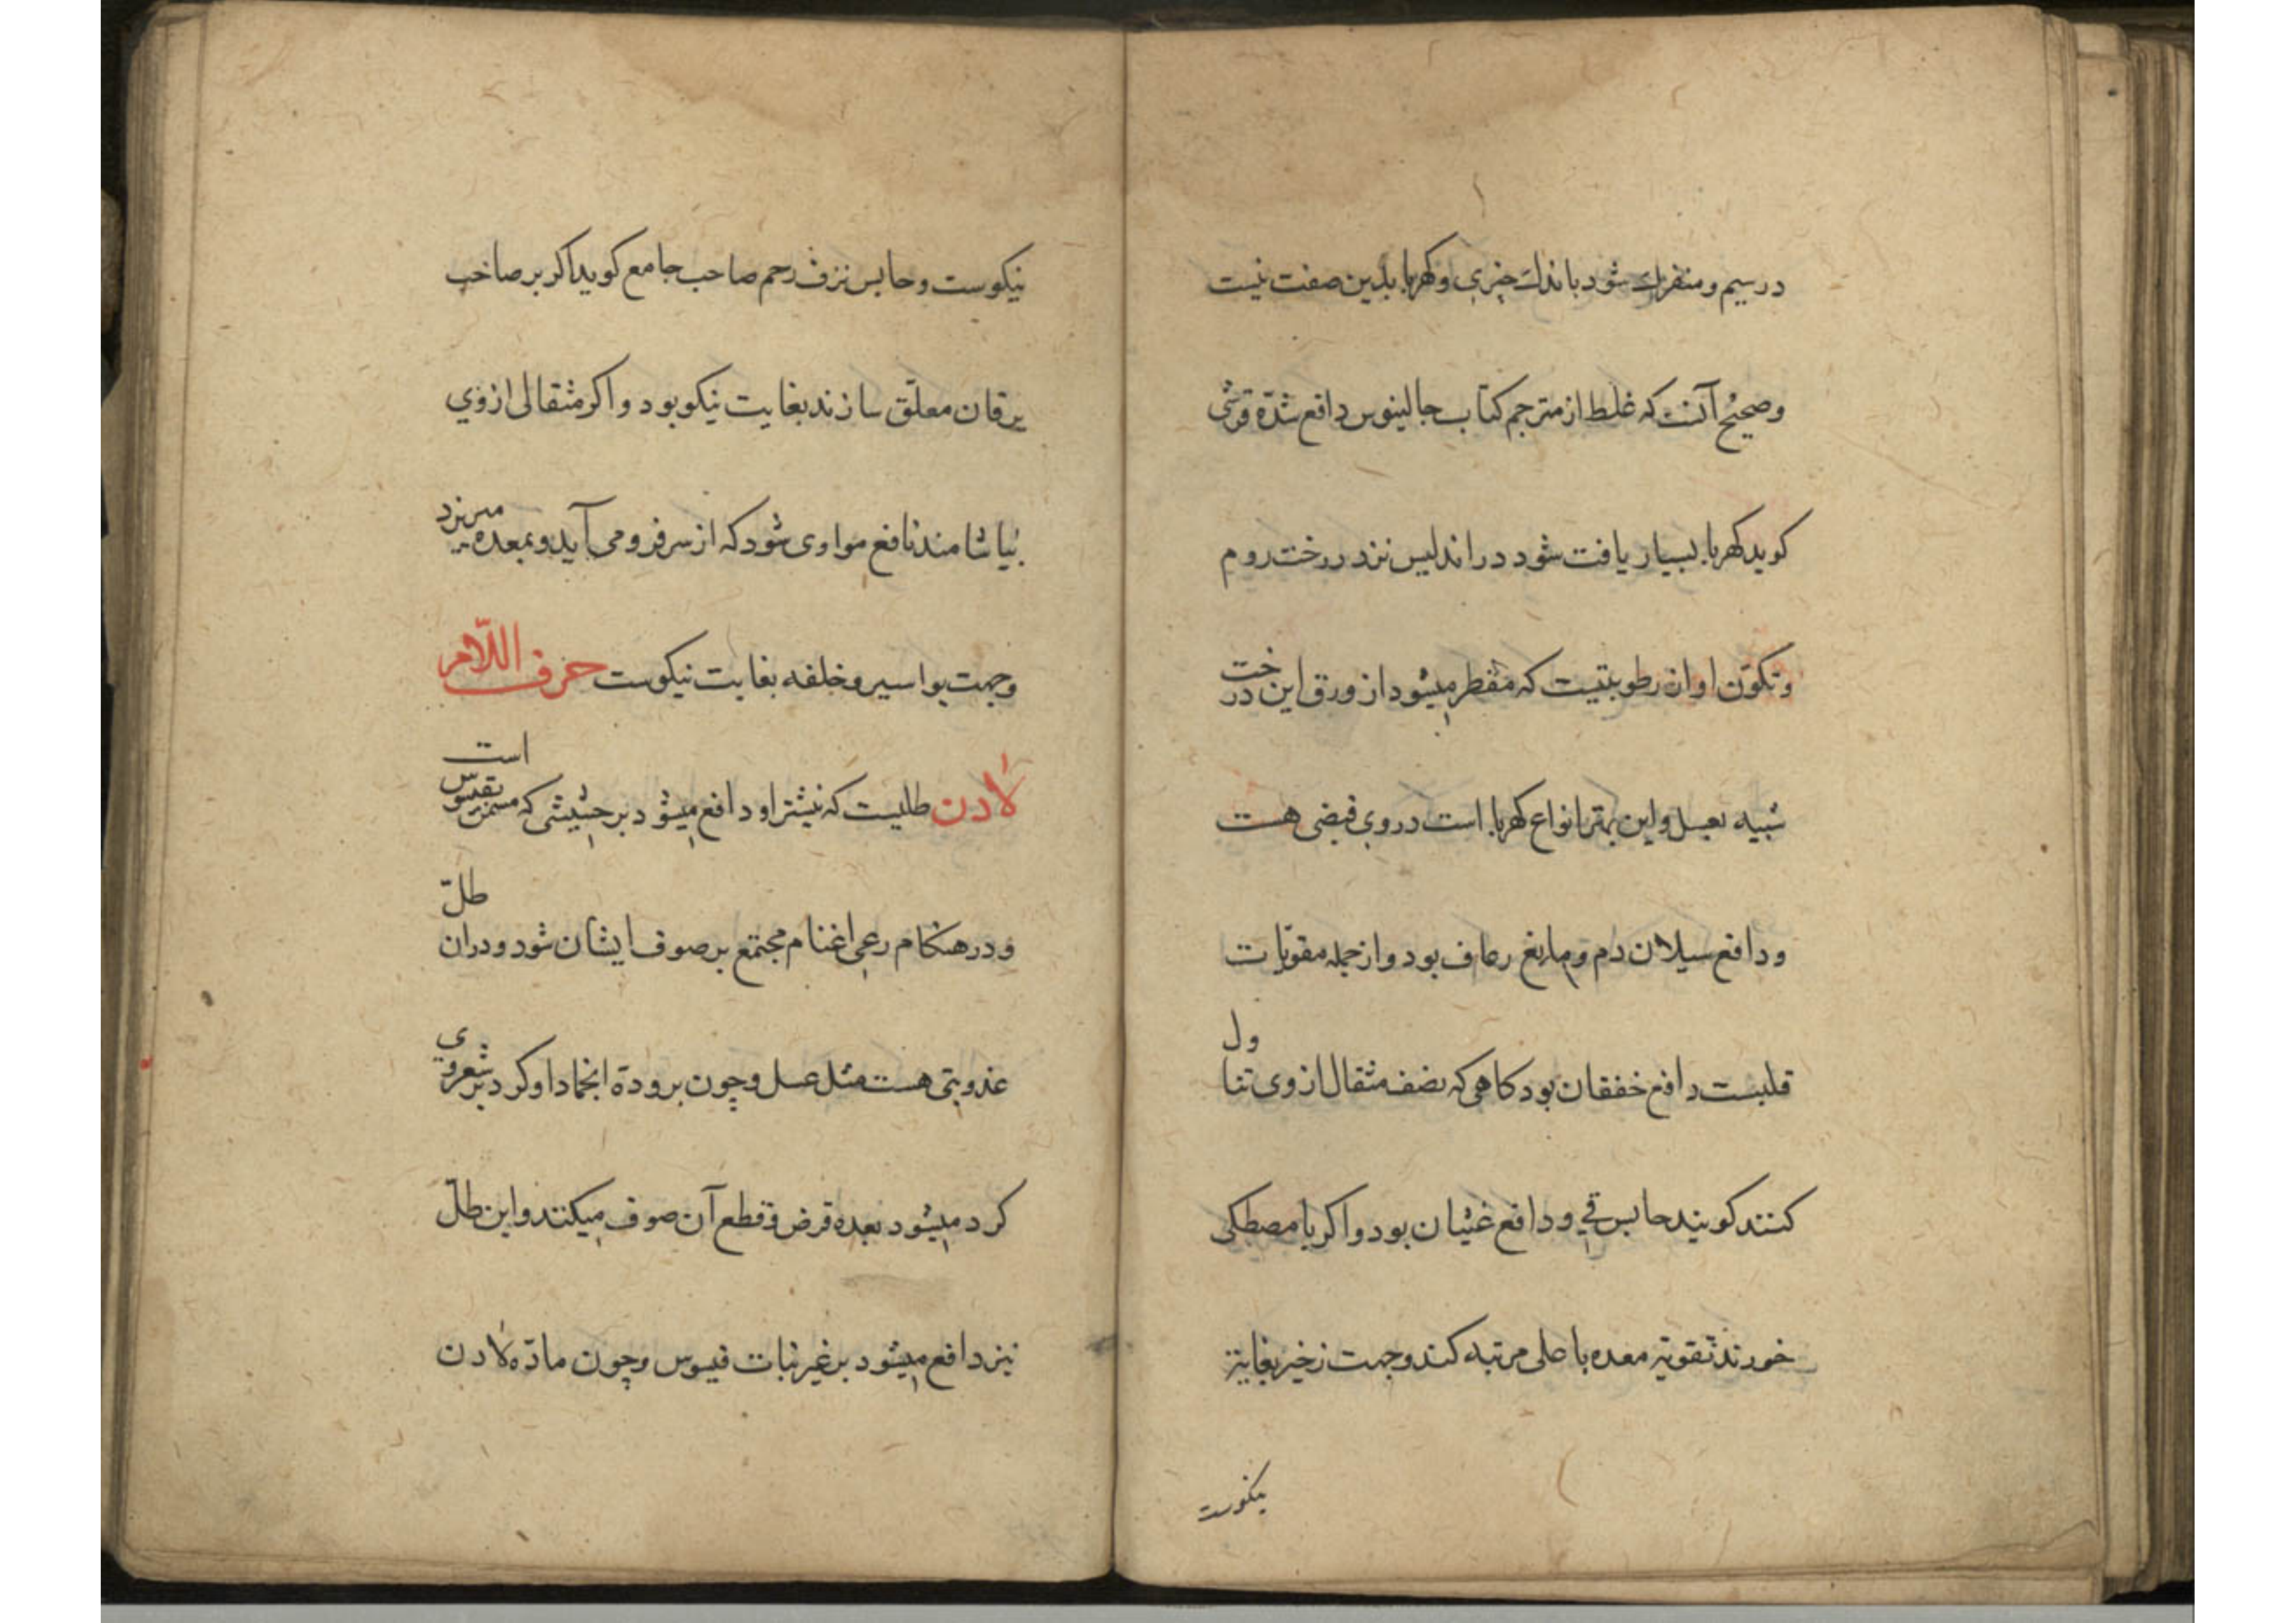 درسیم و منفرك شود باندك چیزی و کهربا بدین صفت نیست
و صحیح آنست که غلط از مترجم کتاب جالینوس دافع شدّه قرشی
کوید کهربا بسیار یافت شود در اندلیس نزد درخت روم
و تکوّن او از رطوبتیست که مقطر میشود از ورق این درخت
شبیه بعسل و این بهتر انواع کهربا است در وی قبضی هست
و دافع سیلان دم و مانع رعاف بود و از جمله مقویات
قلبست دافع خفقان بود کاهی که نصف مثقال از وی تناول
کنند کویند حابس قی و دافع غثیان بود و اکر با مصطکی
خورند تقویة معده با علی مرتبه کند و جهت زخیر بغایت
نیکوست
نیکوست و حابس نزف رحم صاحب جامع کوید اکر بر صاحب
یرقان معلّق سازند بغایت نیکو بود و اکر مثقالی از وی
بیاشامند نافع موادی شود که از سر فرو می آید و بمعده میریزد
و جهت بواسیر و خلفه بغایت نیکوست حرف اللّام
لادن طلیست که بیشتر او دافع میشود بر حشیشی که است
و در هنکام رعی اغنام مجتمع بر صوف ایشان شود و در ان طلّ
عذوبتی هست مثل عسل و چون برودة انجماد او کرد بر شعر وی
کرد میشود بعده قرض و قطع آن صوف میکنند و این طلّ
نیز دافع میشود بر غیر نبات قیسوس و چون مادّه لادن